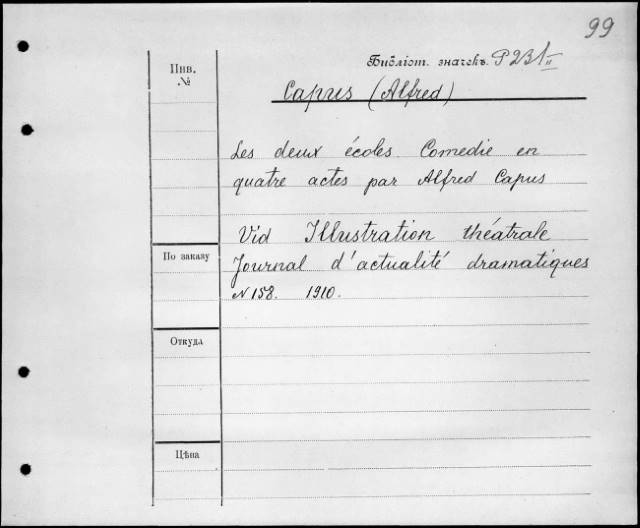 99
Библіот. значекъ. P231 II
Инв.
№
Capus (Alfred)
Les deux écoles. Comedie en
quatre actes par Alfred Capus
Vid Illustration théatrale
По заказу
Journal d'actualité dramatiques
N 158. 1910.
Откуда
Цѣна